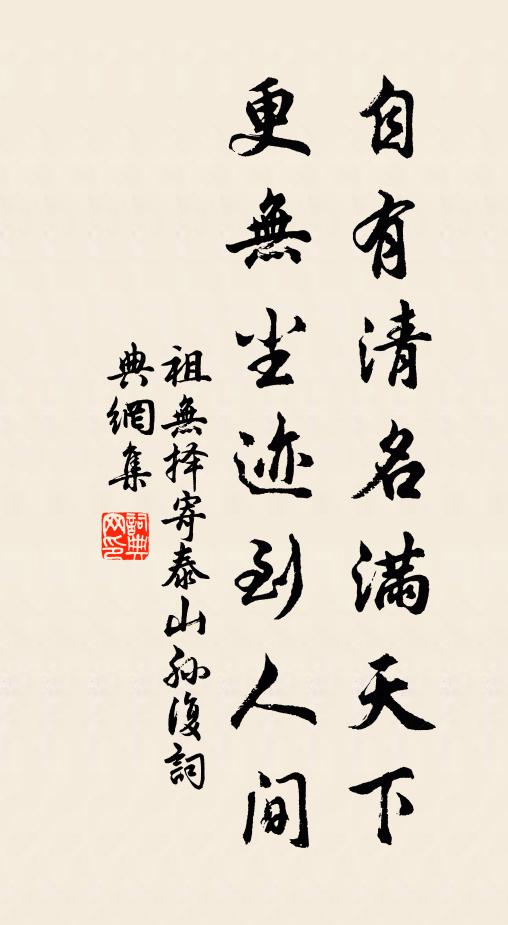 自有清名满天下
更無尘迹到人间
祖無择寄泰山孙復詞
典網集
詞典
网印